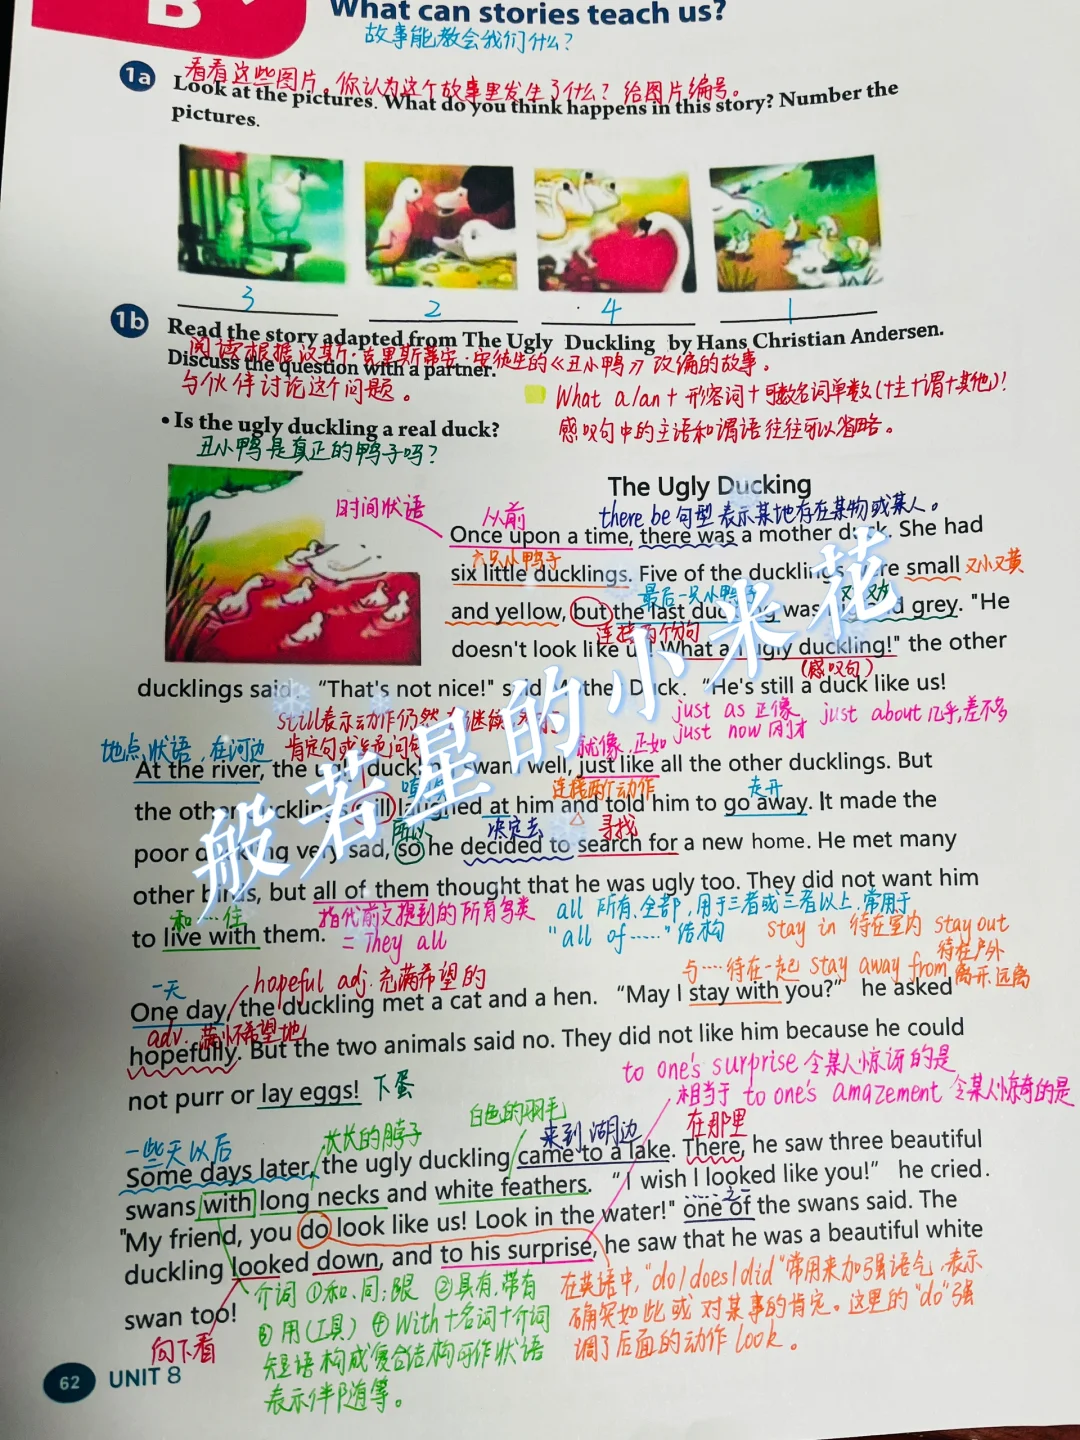 B
What can stories teach us?
故事能教会我们什么?
1a
看看这些图片。你认为这个故事里发生了什么? 给图片编号。
Look at the pictures. What do you think happens in this story? Number the
pictures.
3
2
4
1
1b
Read the story adapted from The Ugly Duckling by Hans Christian Andersen.
阅读根据汉斯·克里斯蒂安·安徒生的《丑小鸭》改编的故事。
Discuss the question with a partner.
与伙伴讨论这个问题。
What a/an + 形容词 + 可数名词单数(+主+谓+其他)!
感叹句中的主语和谓语往往可以省略。
• Is the ugly duckling a real duck?
丑小鸭是真正的鸭子吗?
The Ugly Ducking
时间状语
从前
there be 句型 表示某地存在某物或某人。
Once upon a time, there was a mother duck. She had
六只小鸭子
six little ducklings. Five of the ducklings were small
又小又黄
最后一只小鸭子
and yellow, but the last duckling was and grey. "He
连接两个句
doesn't look like us! What an ugly duckling!" the other
(感叹句)
ducklings said. "That's not nice!" said Mother Duck. "He's still a duck like us!
still表示动作仍然在继续
just as 正像
just about 几乎,差不多
地点状语,在河边
肯定句或疑问句
就像,正如
just now 刚才
At the river, the ugly duckling swam well, just like all the other ducklings. But
连接两个动作
走开
the other ducklings still laughed at him and told him to go away. It made the
所以
决定去
寻找
poor duckling very sad, so he decided to search for a new home. He met many
other birds, but all of them thought that he was ugly too. They did not want him
和…住
指代前文提到的所有鸟类
all 所有,全部,用于三者或三者以上,常用于
to live with them.
= They all
"all of……"结构
stay in 待在室内 stay out
待在户外
与…待在一起 stay away from 离开,远离
一天
hopeful adj. 充满希望的
One day, the duckling met a cat and a hen. "May I stay with you?" he asked
adv. 满怀希望地
hopefully. But the two animals said no. They did not like him because he could
to one's surprise 令某人惊讶的是
not purr or lay eggs!
下蛋
相当于 to one's amazement 令某人惊奇的是
一些天以后
长长的脖子
白色的羽毛
来到湖边
在那里
Some days later, the ugly duckling came to a lake. There, he saw three beautiful
swans with long necks and white feathers. "I wish I looked like you!" he cried.
之一
"My friend, you do look like us! Look in the water!" one of the swans said. The
duckling looked down, and to his surprise, he saw that he was a beautiful white
swan too!
向下看
介词 ①和、同;跟 ②具有,带有
③用(工具) ④With+名词+介词
短语构成复合结构可作状语
表示伴随等。
在英语中,"do/does/did"常用来加强语气,表示
确实如此或对某事的肯定。这里的"do"强
调了后面的动作look。
62 UNIT 8
般若星的小米花